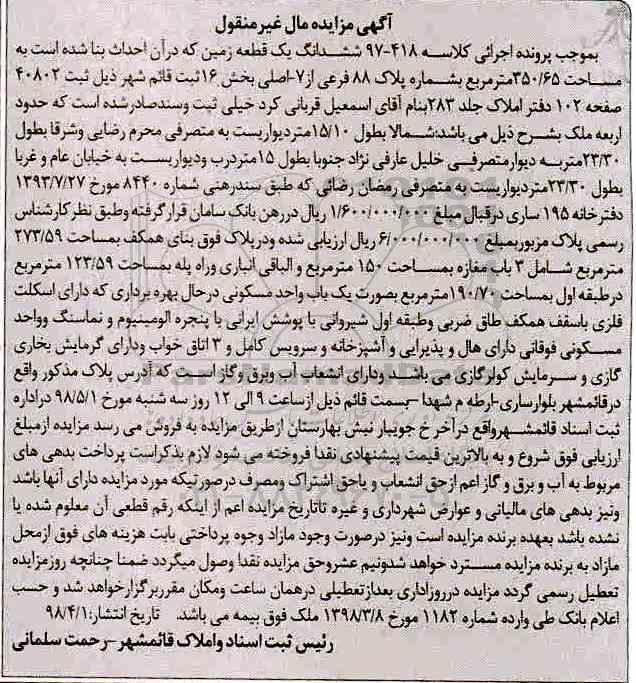 آگهی مزایده مال غیرمنقول
بموجب پرونده اجرائی کلاسه ۴۱۸-۹۷ ششدانگ یک قطعه زمین که درآن احداث بنا شده است به
مساحت ۳۵۰/۶۵مترمربع بشماره پلاک ۸۸ فرعی از۷-اصلی بخش ۱۶ثبت قائم شهر ذیل ثبت ۴۰۸۰۲
صفحه ۱۰۲ دفتر املاک جلد ۲۸۳بنام آقای اسمعیل قربانی کرد خیلی ثبت وسندصادرشده است که حدود
اربعه ملک بشرح ذیل می باشد:شمالا بطول ۱۵/۱۰متردیواریست به متصرفی محرم رضایی وشرقا بطول
۲۳/۳۰متربه دیوارمتصرفی خلیل عارفی نژاد جنوبا بطول ۱۵متردرب ودیواریست به خیابان عام و غربا
بطول ۲۳/۳۰متردیواریست به متصرفی رمضان رضائی که طبق سندرهنی شماره ۸۴۴۰ مورخ ۱۳۹۳/۷/۲۷
دفترخانه ۱۹۵ ساری درقبال مبلغ ۱/۶۰۰/۰۰۰/۰۰۰ ریال دررهن بانک سامان قرارگرفته وطبق نظرکارشناس
رسمی پلاک مزبوربمبلغ ۶/۰۰۰/۰۰۰/۰۰۰ ریال ارزیابی شده ودرپلاک فوق بنای همکف بمساحت ۲۷۳/۵۹
مترمربع شامل ۳ باب مغازه بمساحت ۱۵۰ مترمربع و الباقی انباری وراه پله بمساحت ۱۲۳/۵۹ مترمربع
درطبقه اول بمساحت ۱۹۰/۷۰مترمربع بصورت یک باب واحد مسکونی درحال بهره برداری که دارای اسکلت
فلزی باسقف همکف طاق ضربی وطبقه اول شیروانی با پوشش ایرانی با پنجره الومینیوم و نماسنگ وواحد
مسکونی فوقانی دارای هال و پذیرایی و آشپزخانه و سرویس کامل و ۳ اتاق خواب ودارای گرمایش بخاری
گازی و سرمایش کولرگازی می باشد ودارای انشعاب آب وبرق وگاز است که آدرس پلاک مذکور واقع
درقائمشهر بلوارساری-ارطه م شهدا -بسمت قائم ذیل ازساعت ۹ الی ۱۲ روز سه شنبه مورخ ۹۸/۵/۱ دراداره
ثبت اسناد قائمشهرواقع درآخر خ جویبار نبش بهارستان ازطریق مزایده به فروش می رسد مزایده ازمبلغ
ارزیابی فوق شروع و به بالاترین قیمت پیشنهادی نقدا فروخته می شود لازم بذکراست پرداخت بدهی های
مربوط به آب و برق و گاز اعم ازحق انشعاب و یاحق اشتراک ومصرف درصورتیکه مورد مزایده دارای آنها باشد
ونیز بدهی های مالیاتی و عوارض شهرداری و غیره تاتاریخ مزایده اعم از اینکه رقم قطعی آن معلوم شده یا
نشده باشد بعهده برنده مزایده است ونیز درصورت وجود مازاد وجوه پرداختی بابت هزینه های فوق ازمحل
مازاد به برنده مزایده مسترد خواهد شدونیم عشروحق مزایده نقدا وصول میگردد ضمنا چنانچه روزمزایده
تعطیل رسمی گردد مزایده درروزاداری بعدازتعطیلی درهمان ساعت ومکان مقرربرگزارخواهد شد و حسب
اعلام بانک طی وارده شماره ۱۱۸۲ مورخ ۱۳۹۸/۳/۸ ملک فوق بیمه می باشد. تاریخ انتشار:۹۸/۴/۱
رئیس ثبت اسناد واملاک قائمشهر -رحمت سلمانی